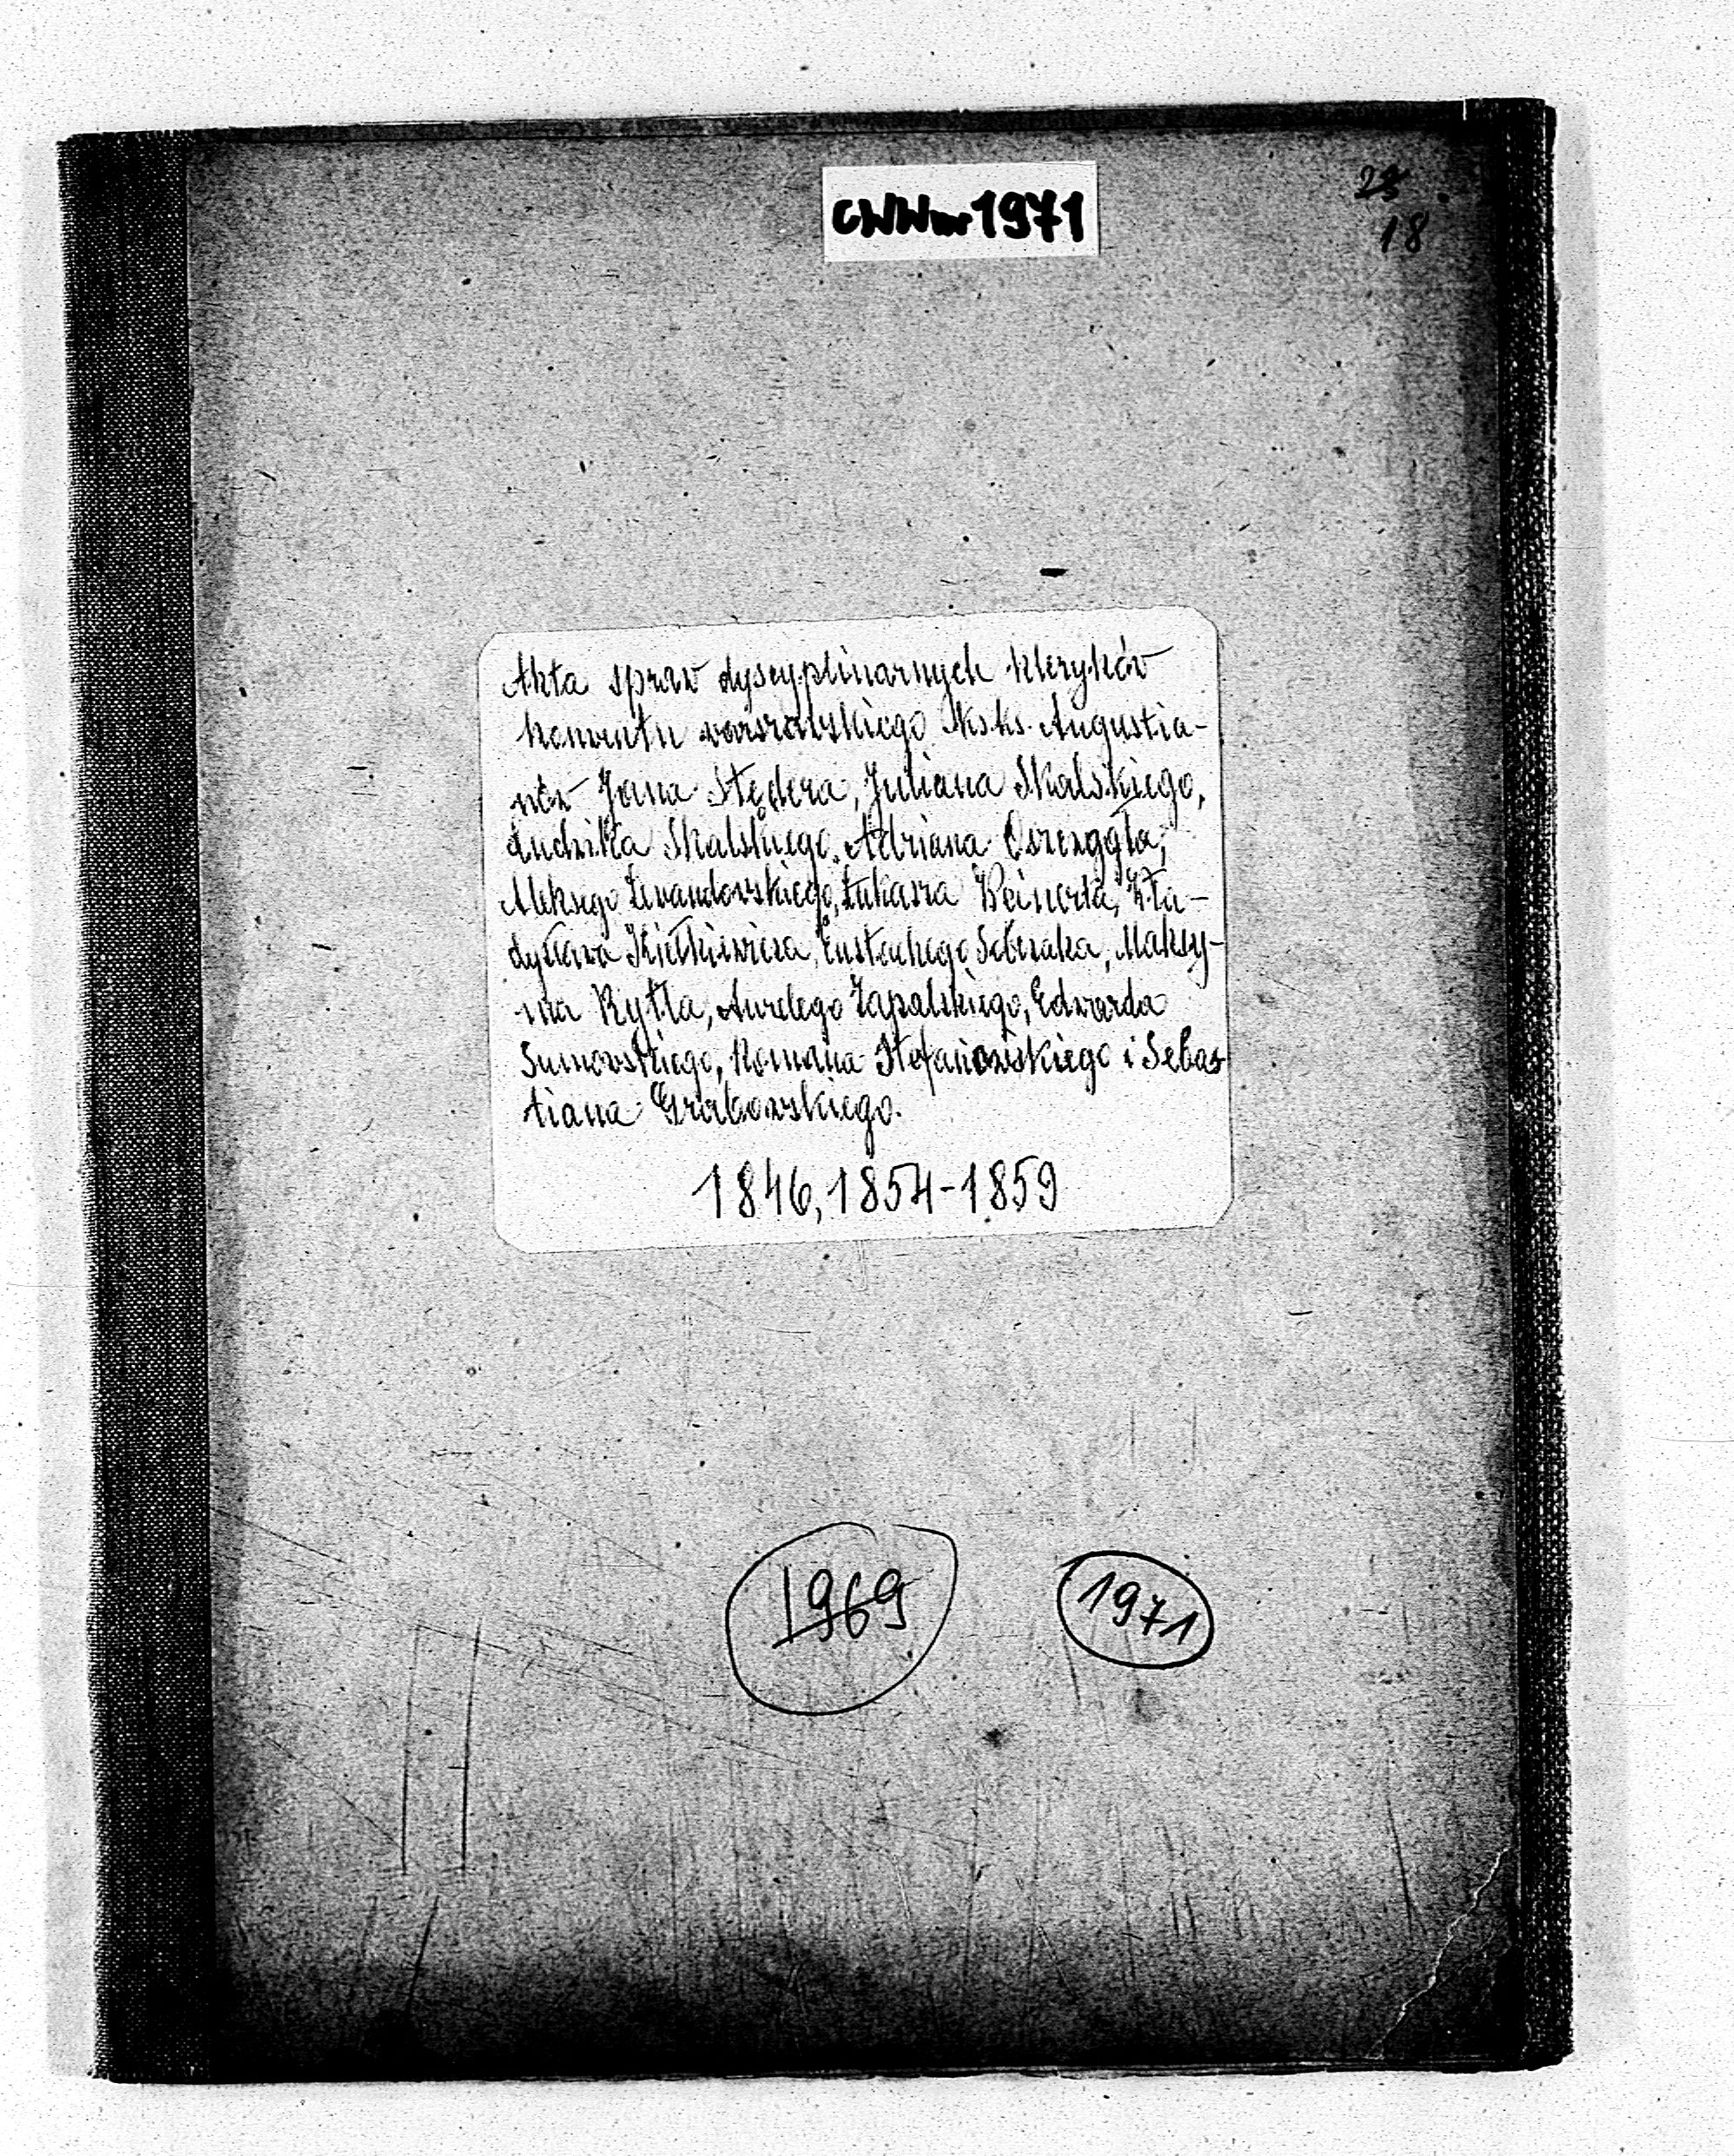 CWWm 1971
23
18
Akta spraw dyscyplinarnych kleryków
konwentu warszawskiego Ks.ks. Augustia-
nów Jana Stędera, Juliana Skalskiego,
Ludwika Skalskiego, Adriana
Aleksego Lewandowskiego, Łukasza Weinerta, Wła-
dysława Kiełkiewicza, Eustachego Maksy-
ma Rytla, Aurelego Zapalskiego, Edwarda
Sumowskiego, Romana Stefanowskiego i Sebas
tiana Grabowskiego.
1846, 1854-1859
1969
1971